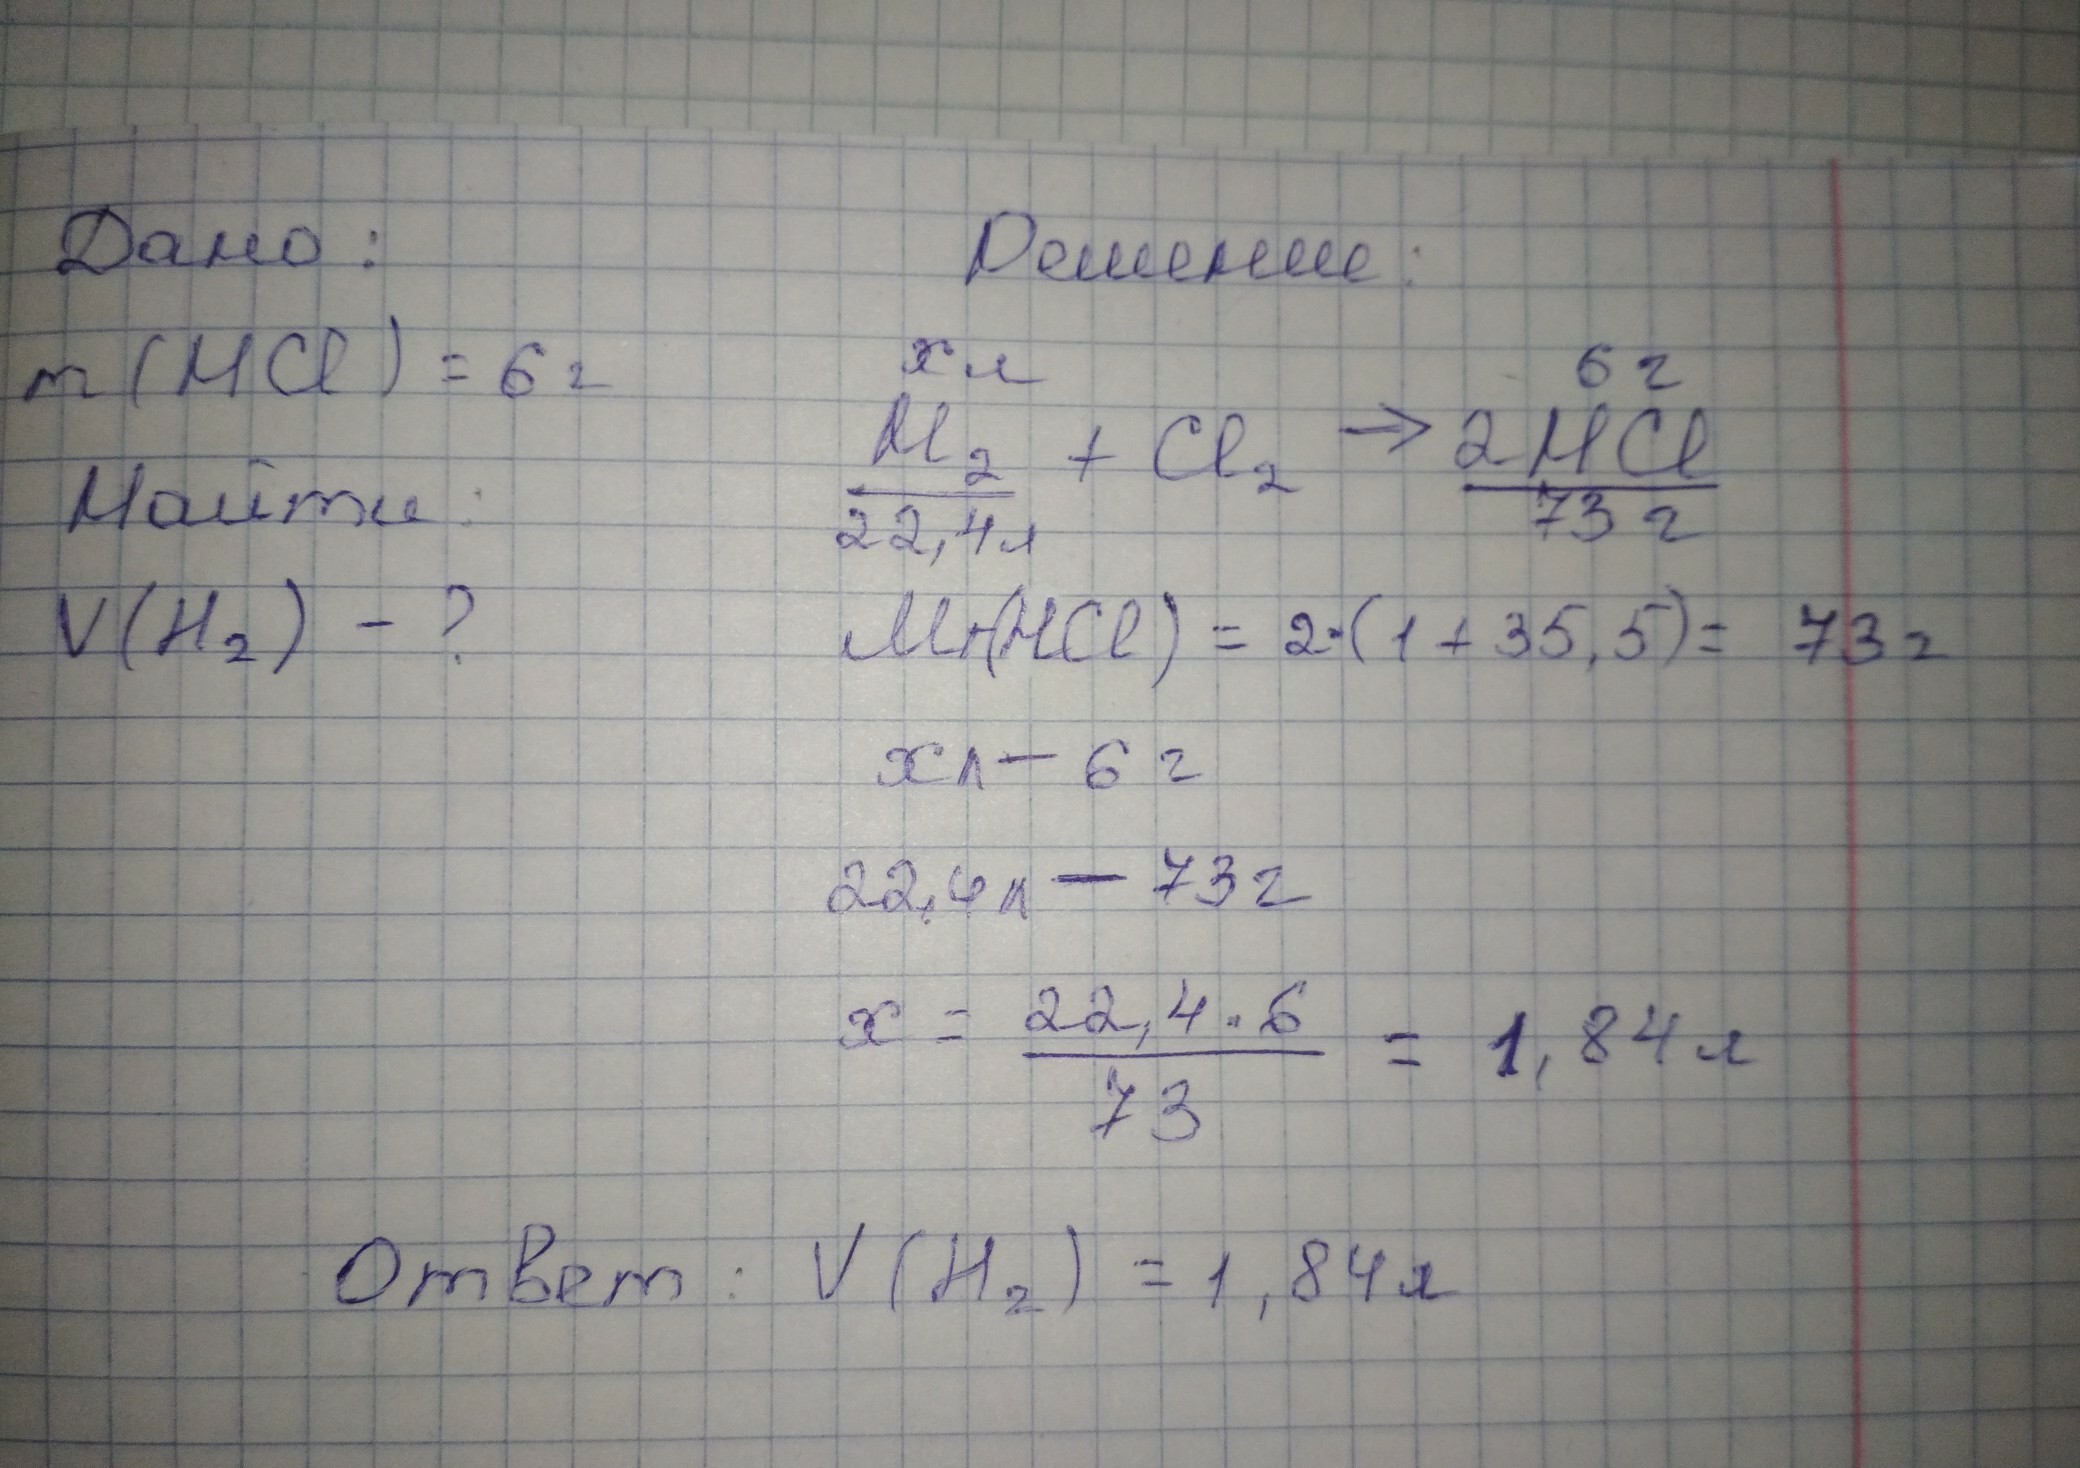 Дано:
m(HCl) = 6г
Найти:
V(H₂) - ?
Решение:
x л 6 г
H₂ + Cl₂ → 2HCl
22,4л 73 г
Mr(HCl) = 2·(1+35,5)= 73г
x л — 6 г
22,4л — 73г
x = 22,4·6 / 73 = 1,84л
Ответ: V(H₂) = 1,84л